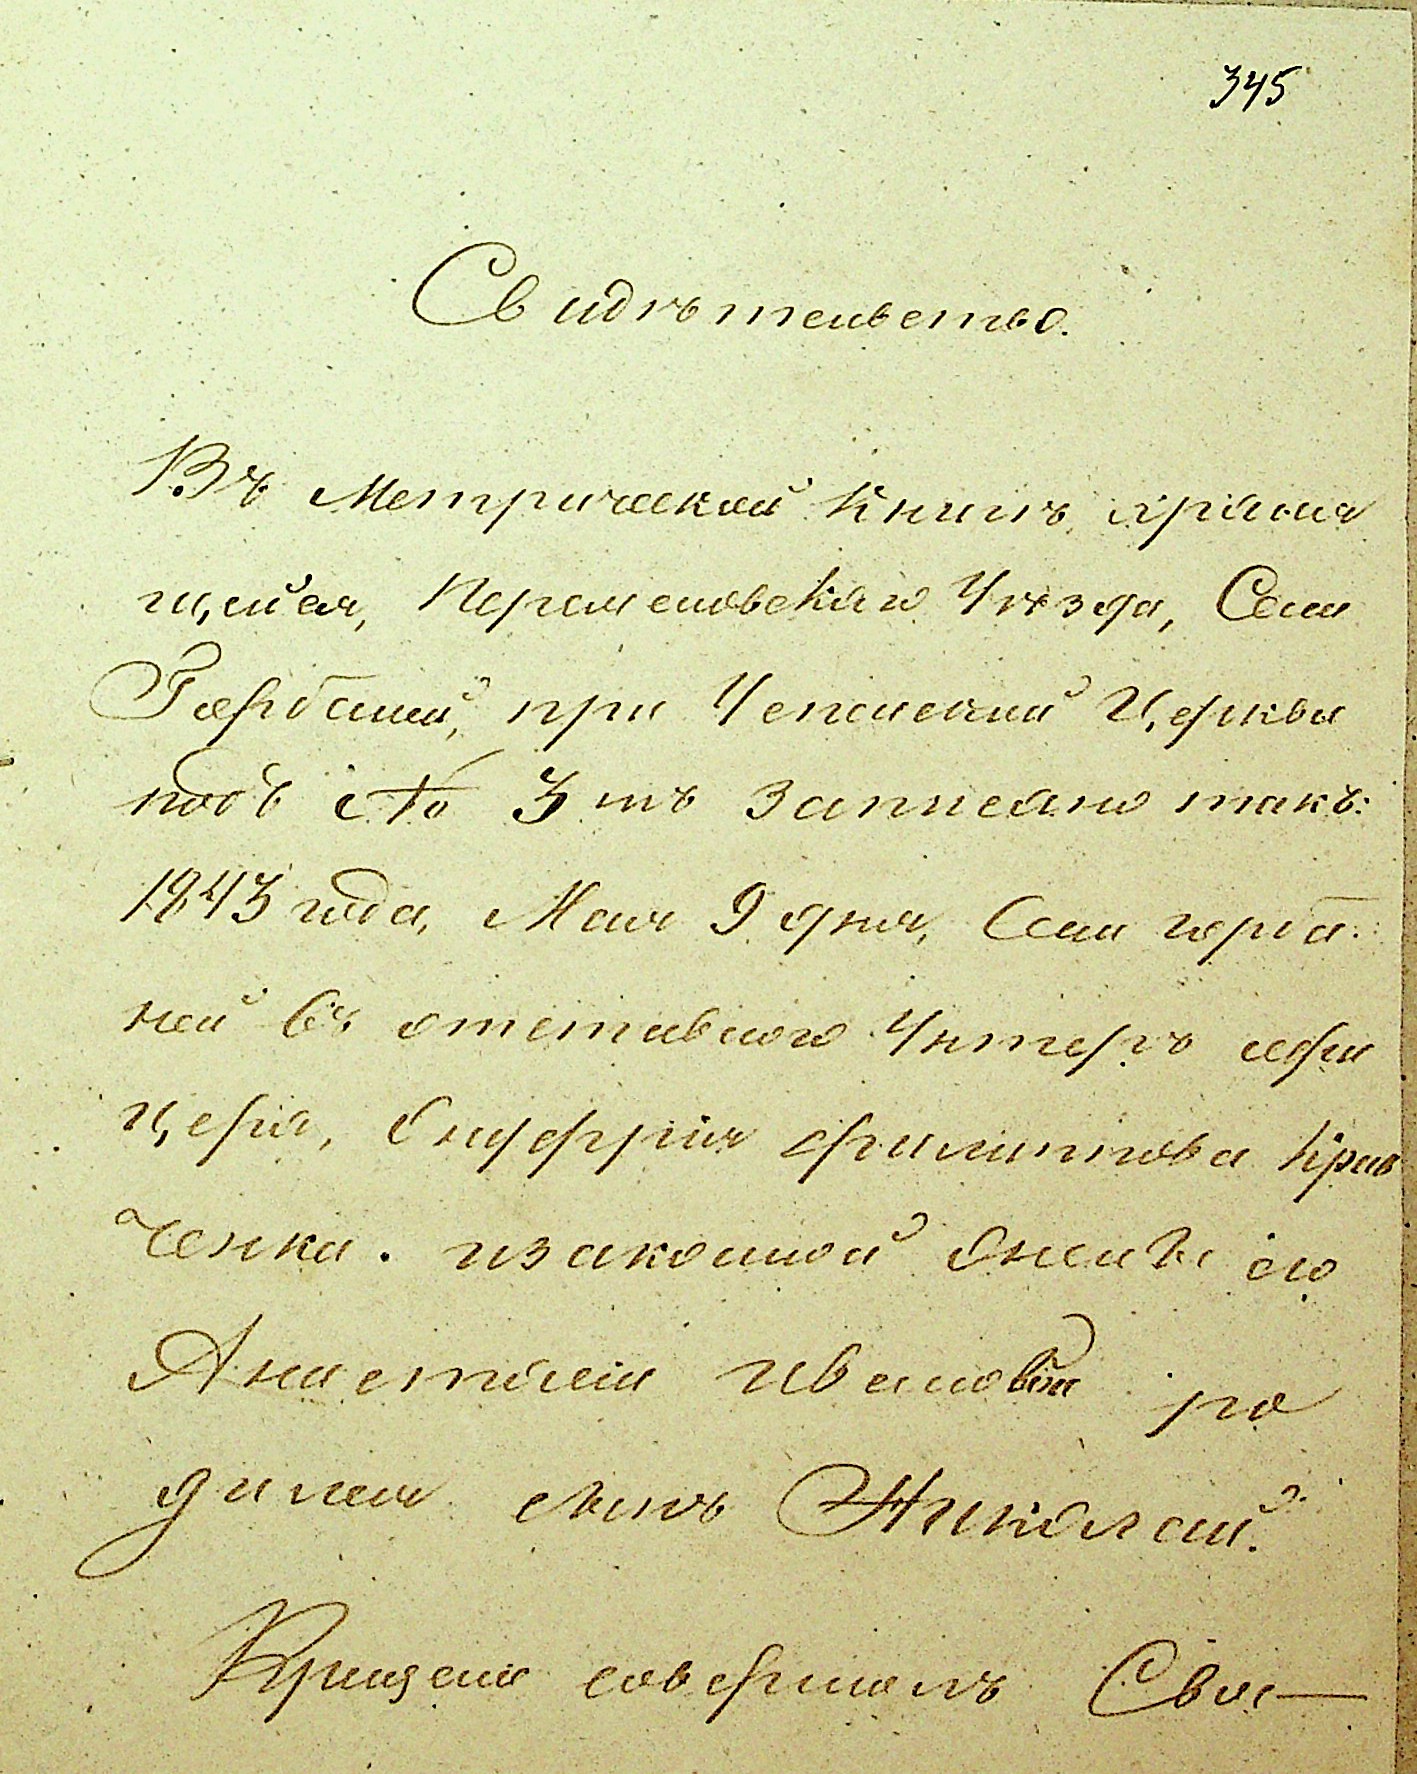 345
Свидѣтельство.
Въ Метрической Книгѣ храня
щейся, Уѣзда, Села
при Успенской Церкви
подъ № 3 мъ записано такъ:
1843 года, Мая 9 дня, Села горба
ней въ отставного Унтеръ офи
цера, Онуффрія Филиппова Крав
ченка. изаконной Жены его
Анастасіи Ивановой ро
дился сынъ Николай.
Крещеніе совершалъ Свя—